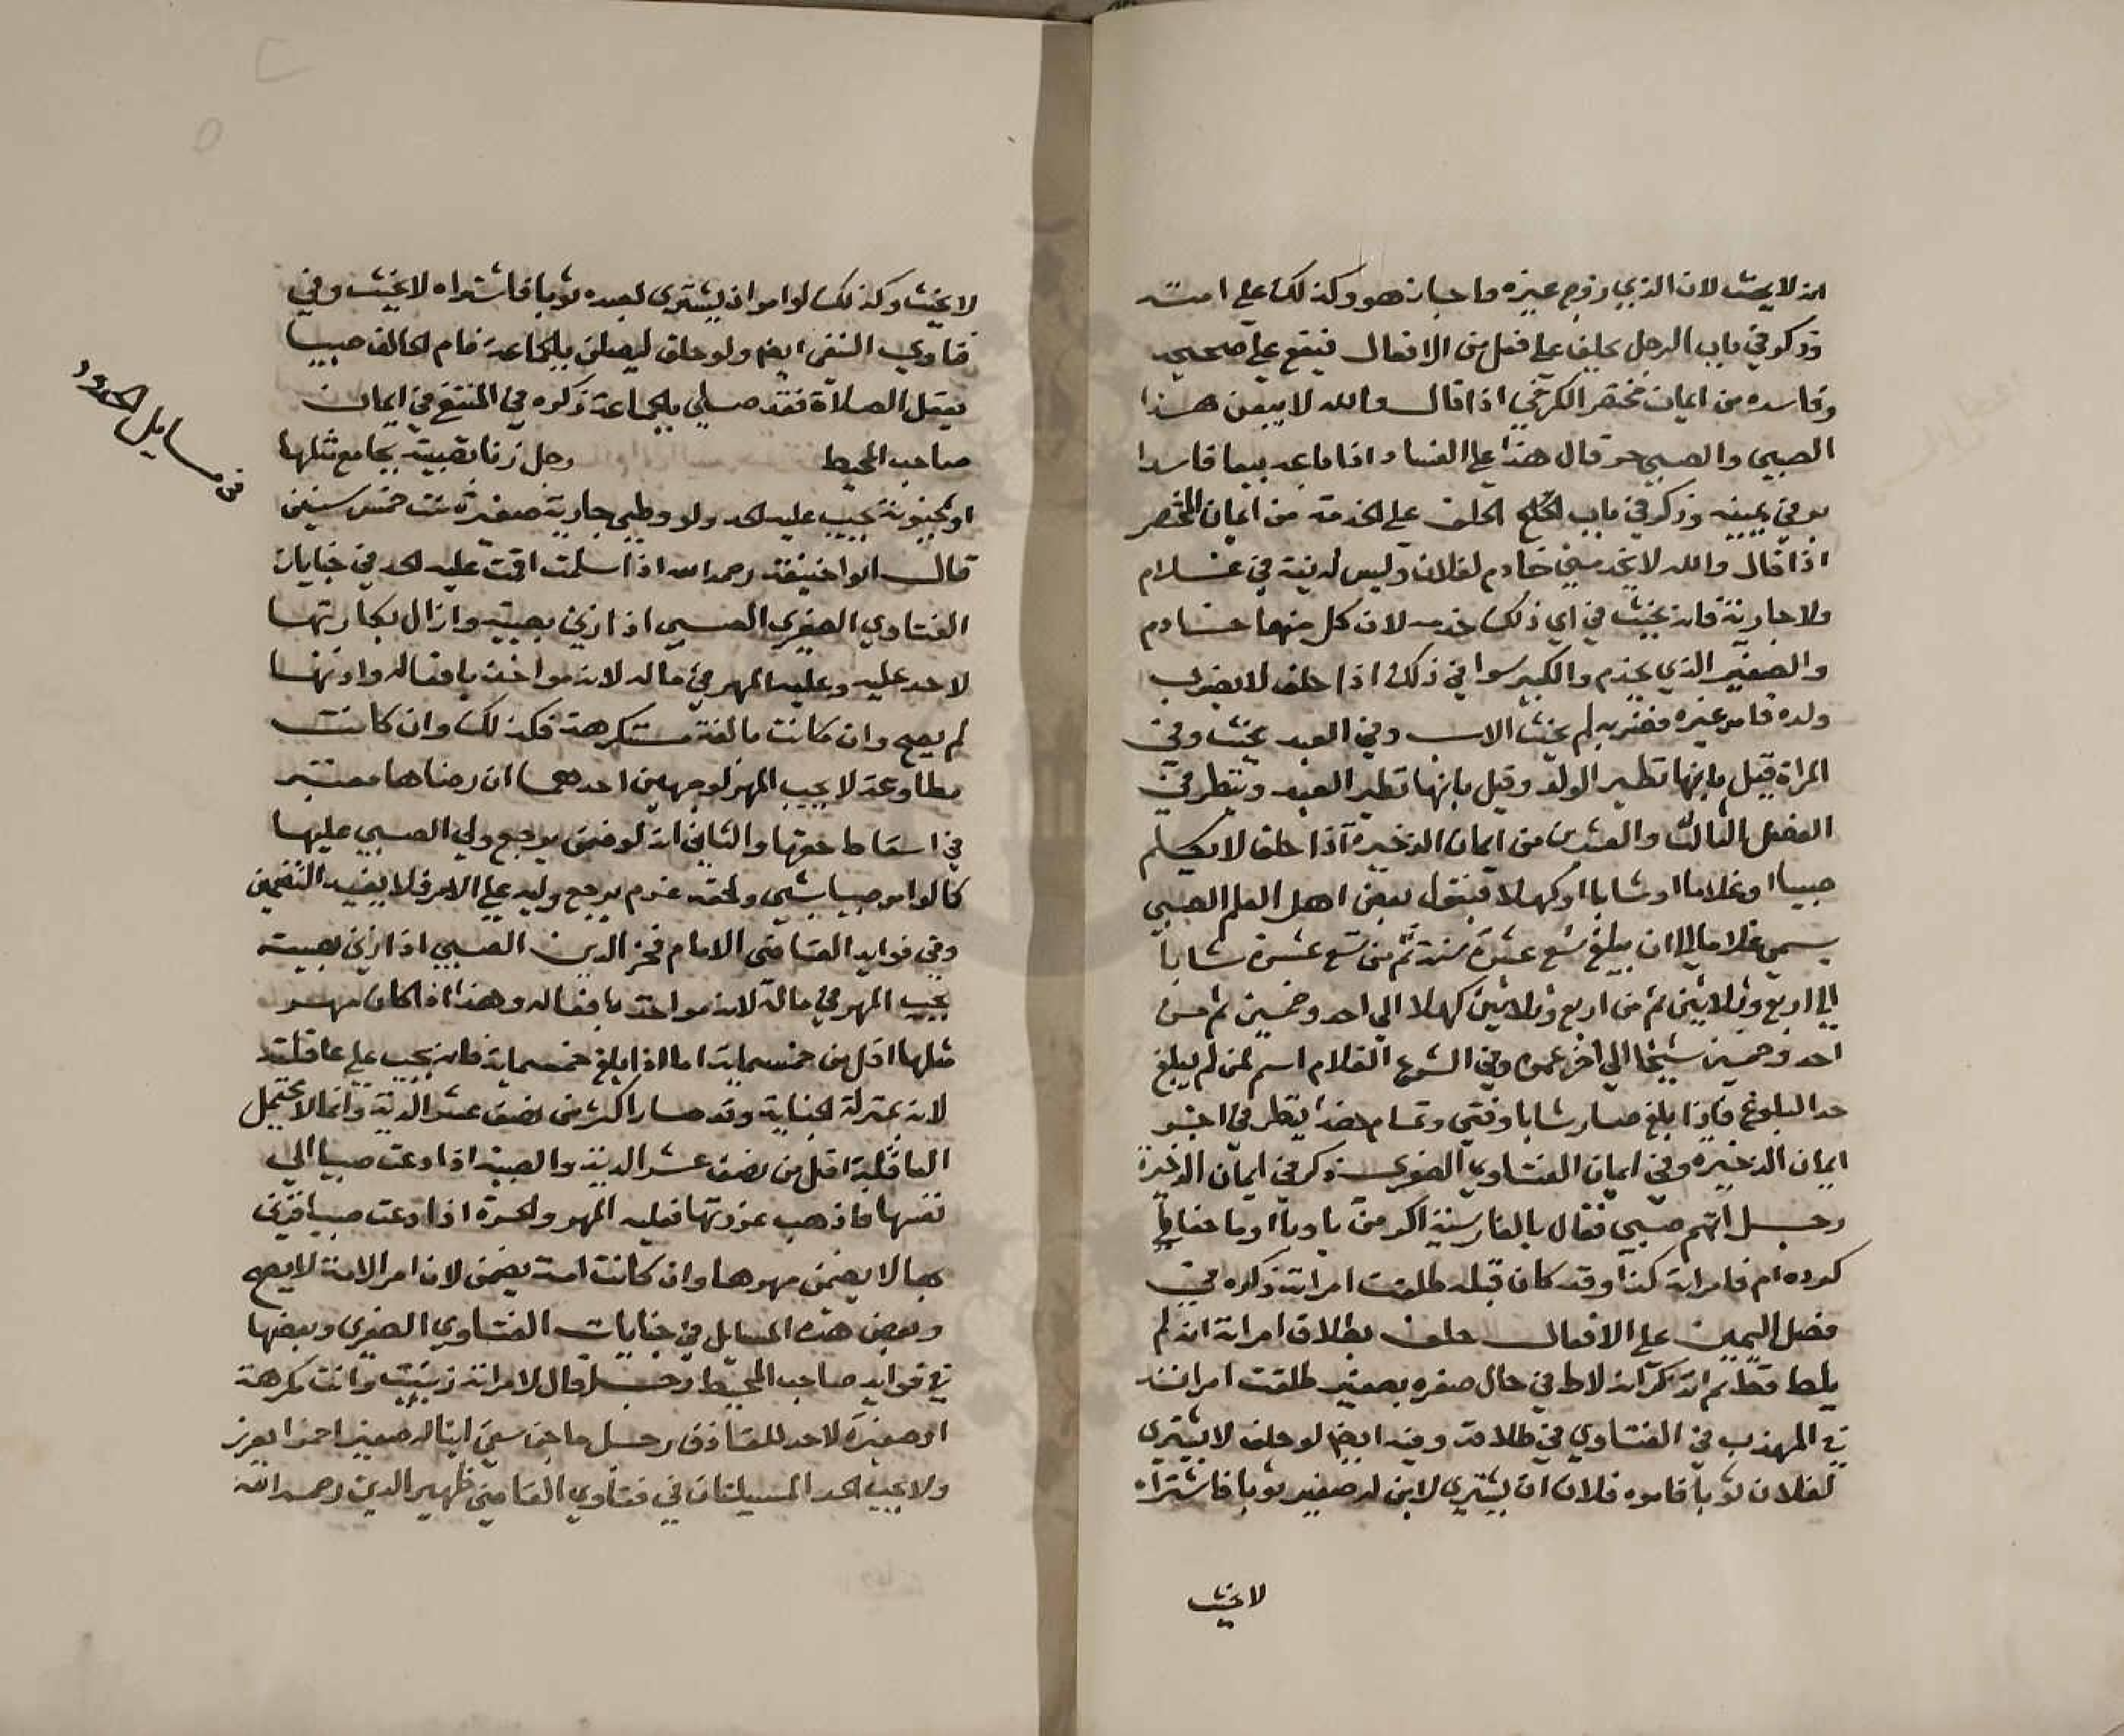 انه لا يحنث لان الذي زوج غيره واجبان هو وكذلك علي امته
وذكر في باب الرجل يحلف علي فعل من الافعال فيقع علي صحيحه
وفاسده من ايمان مختصر الكرخي اذا قال والله لا يبيعن هذا
الصبي والصبي حر قال هذا علي الفساد اذا باعه بيعا فاسدا
بر في يمينه وذكر في باب الحلف علي الخدمة من ايمان المختصر
اذا قال والله لا يخدمني خادم لفلان وليس له نية في غلام
ولا جارية فانه يحنث في اي ذلك خدمه لان كل منهما خادم
والصغير الذي يخدم والكبير سوا في ذلك اذا حلف لا يضرب
ولده فامر غيره فضربه لم يحنث الاب وفي العبد يحنث وفي
المراة قيل بانها نظير الولد وقيل بانها نظير العبد وينظر في
الفصل الثالث والعشرين من ايمان الذخيرة اذا حلف لا يكلم
صبيا او غلاما او شابا او كهلا فنقول بعض اهل العلم الصبي
يسمي غلاما الي ان يبلغ تسع عشرة سنة ثم من تسع عشرة شابا
الي اربع وثلاثين ثم من اربع وثلاثين كهلا الي احد وخمسين ثم من
احد وخمسين شيخا الي اخر عمره وفي الشرع الغلام اسم لمن لم يبلغ
حد البلوغ فاذا بلغ صار شابا وفتي وتمام هذا ينظر في اخر
ايمان الذخيرة وفي ايمان الفتاوي الصغري ذكر في ايمان الذخيرة
رجل اتهم صبي فقال بالفارسية اكر من باوي
كرده ام فامراته كذا وقد كان قبله طلقت امراته ذكره في
فصل اليمين علي الافعال حلف بطلاق امراته انه لم
يلط قط ثم انه ذكر انه لاط في حال صغره بصغير طلقت امراته
في المهذب في الفتاوي في طلاقه وفيه ايضا لو حلف لا يشتري
لفلان ثوبا فامره فلان ان يشتري لابن له صغير ثوبا فاشتراه
لا يحنث
لا يحنث وكذلك لو امره ان يشتري لعبده ثوبا فاشتراه لا يحنث وفي
فتاوي النسفي ايضا ولو حلف ليصلين بالجماعة فام الحالف صبيا
يعقل الصلاة فقد صلي بالجماعة ذكره في المنتقي في ايمان
صاحب المحيط رجل زنا بصبية يجامع مثلها
او مجنونة يجب عليه الحد ولو وطي جارية صغيرة بنت خمس سنين
قال ابو احنيفة رحمه الله اذا سلمت اقمت عليه الحد في جنايات
الفتاوي الصغري الصبي اذا زني بصبية وازال بكارتها
لا حد عليه وعليه المهر في ماله لانه مواخذ بافعاله واذنها
لم يصح وان كانت بالغة مستكرهة فكذلك وان كانت
مطاوعة لا يجب المهر لوجهين احدهما ان رضاها معتبر
في اسقاط حقها والثاني انه لو ضمن يرجع ولي الصبي عليها
كما لو امر صبيا بشي ولحقه غرم يرجع وليه علي الامر فلا يفيد التضمين
وفي فوايد القاضي الامام فخر الدين الصبي اذا زني بصبية
يجب المهر في ماله لانه مواخذ بافعاله وهذا اذا كان مهر
مثلها اقل من خمسماية اما اذا بلغ خمسماية فانه يجب علي عاقلته
لانه بمنزلة الجناية وقد صار اكثر من نصف عشر الدية وانما لا يحتمل
العاقلة اقل من نصف عشر الدية والصبية اذا دعت صبيا الي
نفسها فاذهب عذرتها فعليه المهر والحرة اذا دعت صبيا فزني
بها لا يضمن مهرها وان كانت امة يضمن لان امر الامة لا يصح
وبعض هذه المسايل في جنايات الفتاوي الصغري وبعضها
في فوايد صاحب المحيط رجل قال لامراته زنيت وانت مكرهة
او صغيرة لا حد للقاذف رجل ابنا له صغيرا
ولا يجب الحد المسيلتان في فتاوي القاضي ظهير الدين رحمه الله
في مسايل الحدود